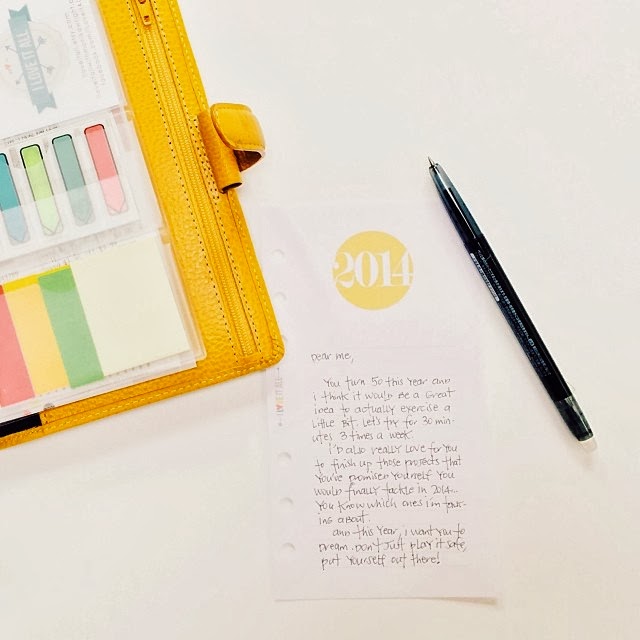 I LOVE IT ALL
2014
Dear me,
You turn 50 this year and
i think it would be a great
idea to actually exercise a
little bit. Let's try for 30 min-
utes 3 times a week.
I'd also really love for you
to finish up those projects that
you've promised yourself you
would finally tackle in 2014...
You know which ones i'm talk-
ing about.
and this year, i want you to
dream. Don't just play it safe,
put yourself out there!